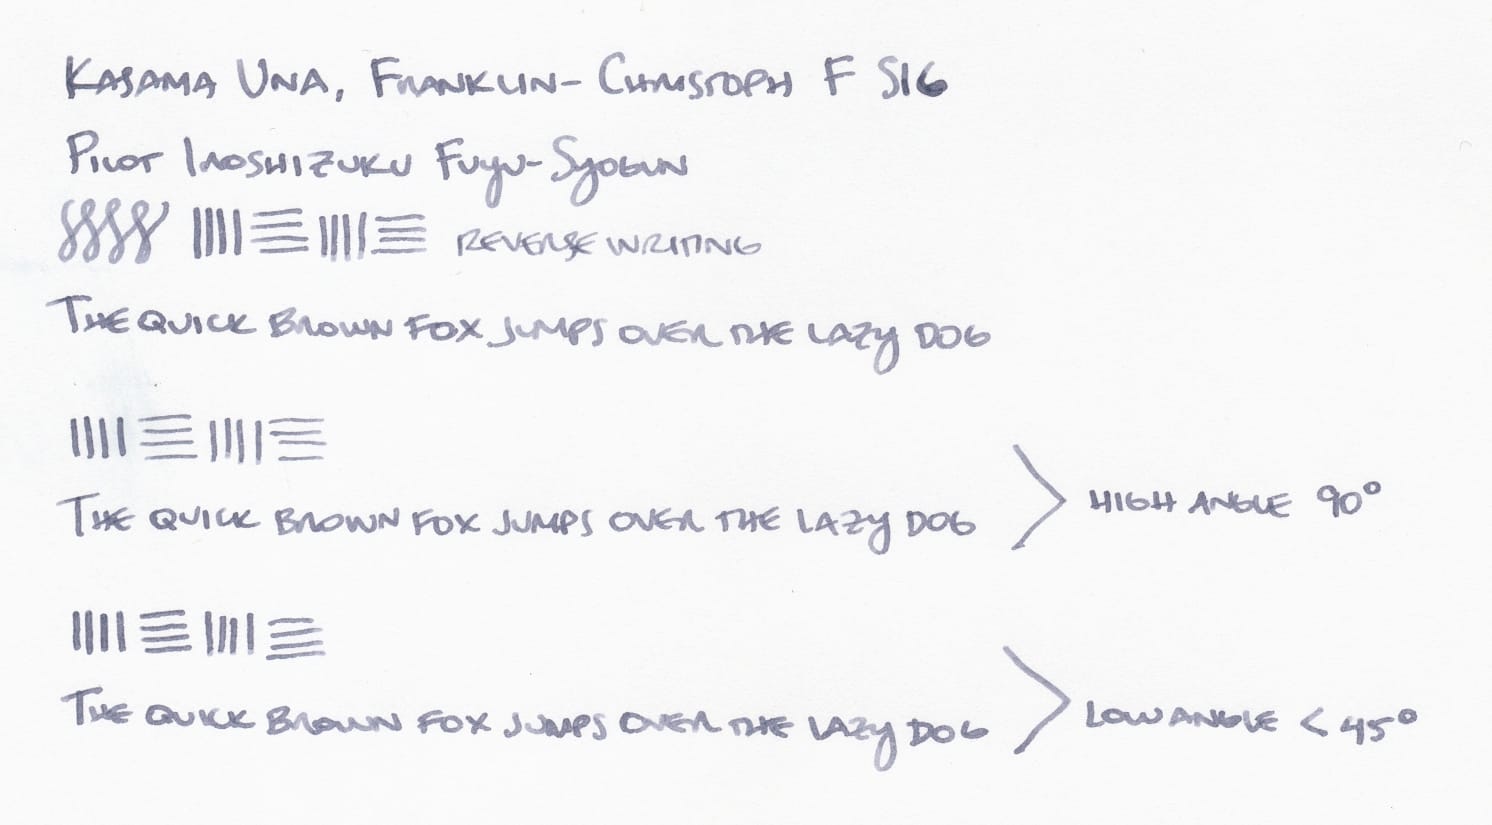 Kasama Una, Franklin-Christoph F S16
Pilot Iroshizuku Fuyu-Syogun
REVERSE WRITING
The quick brown fox jumps over the lazy dog
The quick brown fox jumps over the lazy dog
HIGH ANGLE 90°
The quick brown fox jumps over the lazy dog
LOW ANGLE < 45°